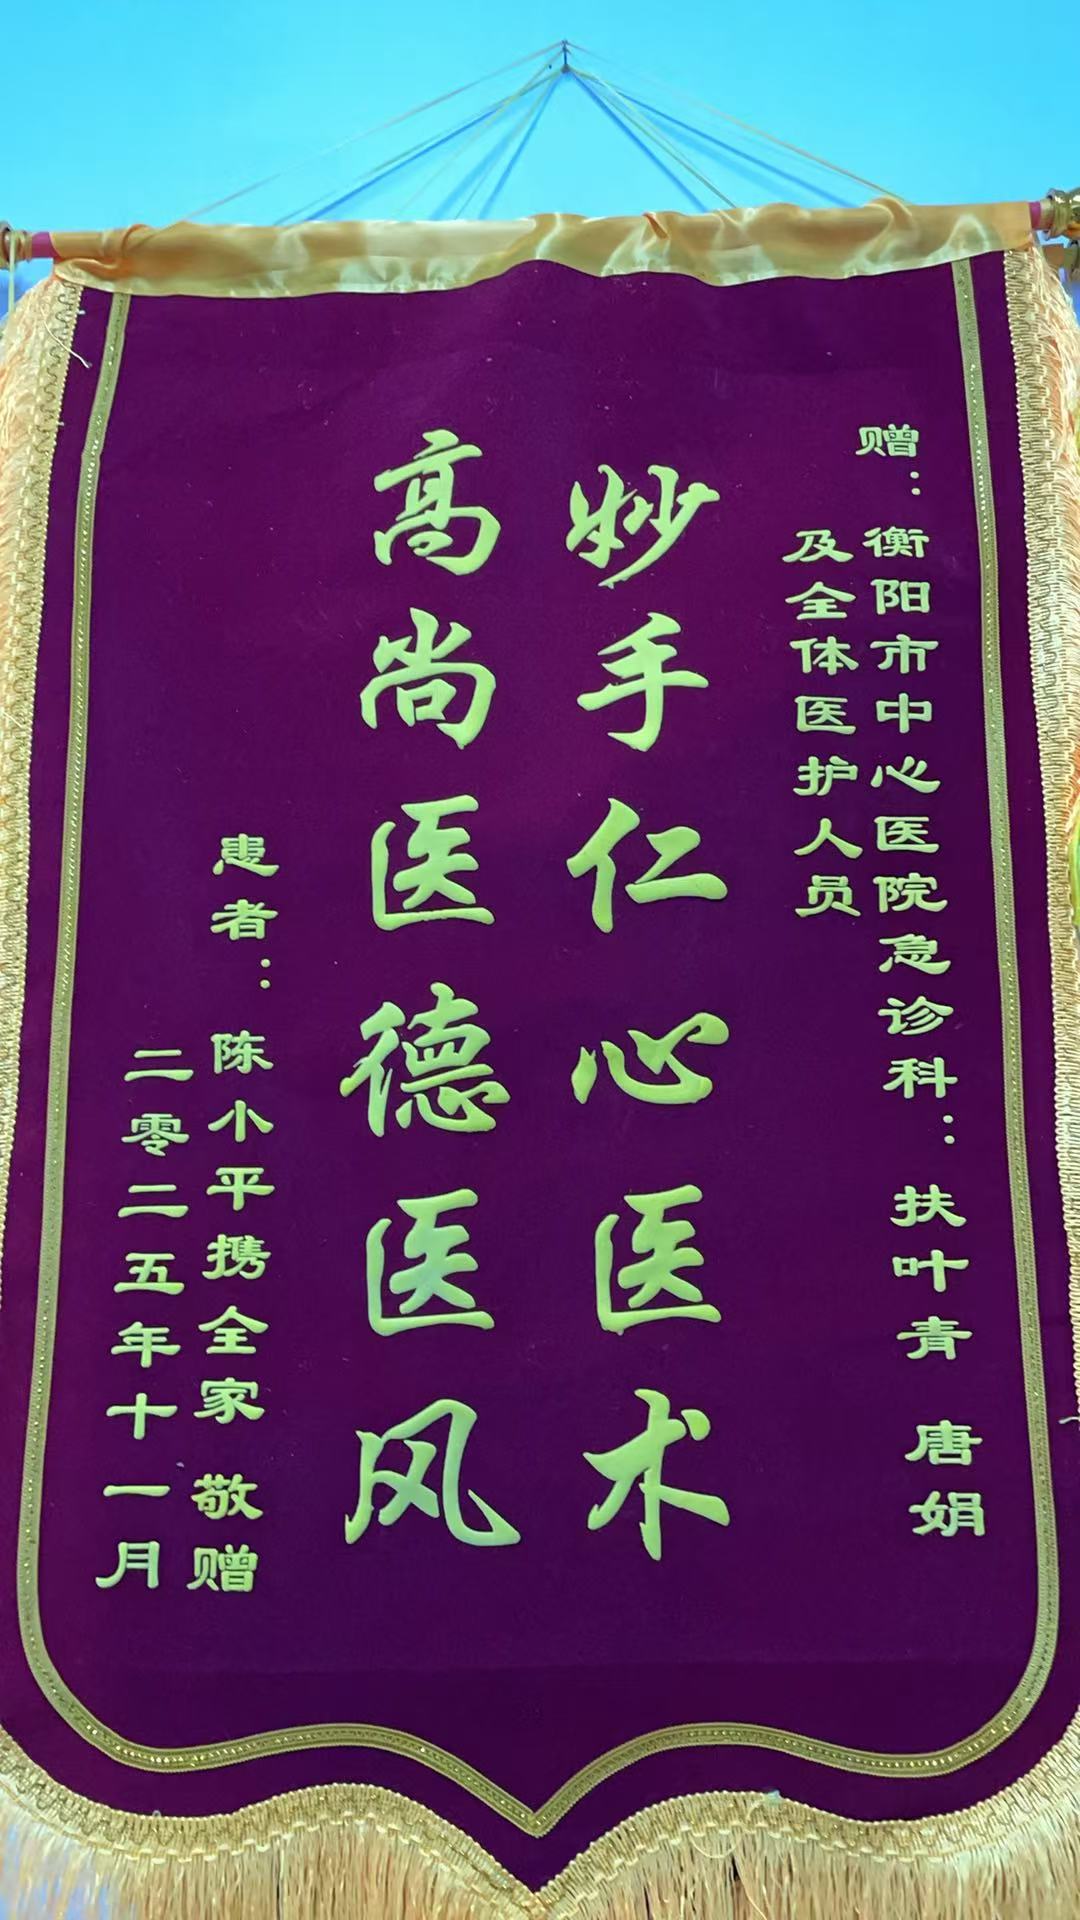 赠：衡阳市中心医院急诊科：扶叶青 唐娟
及全体医护人员
妙手仁心医术
高尚医德医风
患者：陈小平携全家 敬赠
二零二五年十一月